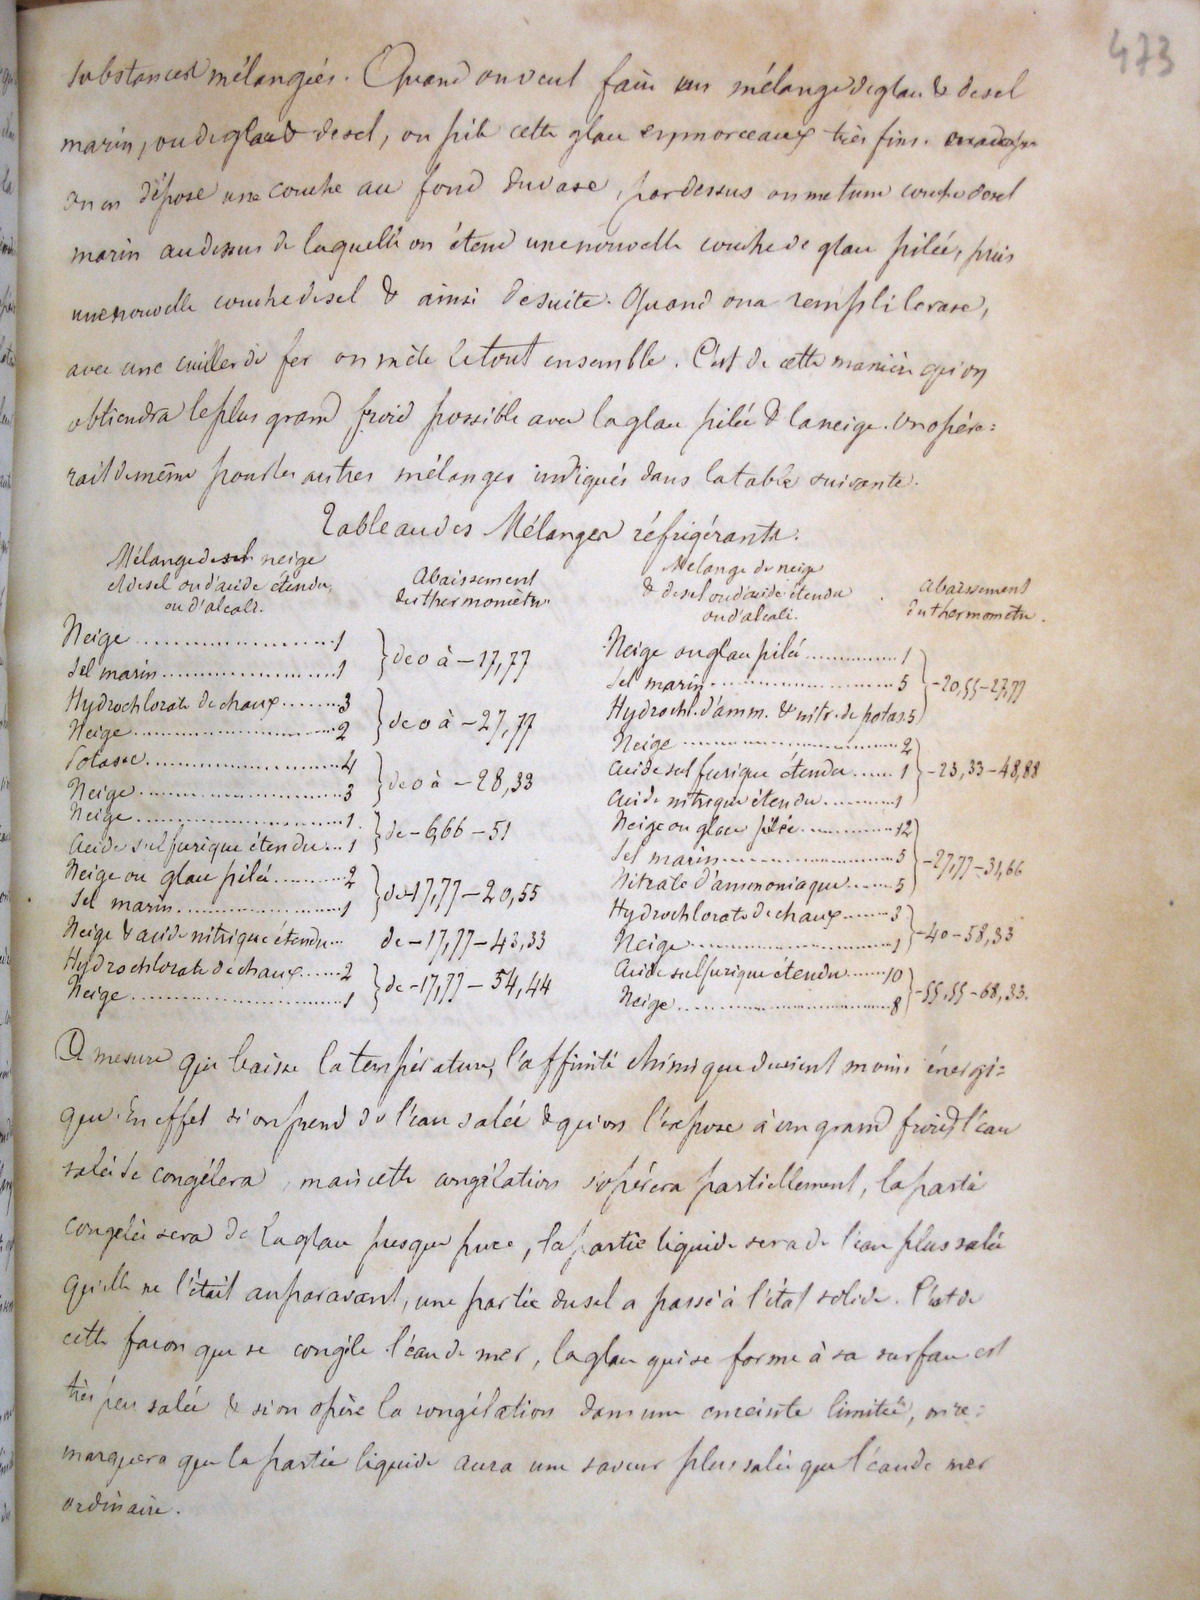 473
substances mélangées. Quand on veut faire un mélange de glace & de sel
marin, ou de glace & de sel, on pile cette glace en morceaux très fins.
on en dépose une couche au fond du vase, par dessus on met une couche de sel
marin au dessus de laquelle on étend une nouvelle couche de glace pilée, puis
une nouvelle couche de sel & ainsi de suite. Quand on a rempli le vase,
avec une cuiller de fer on mêle le tout ensemble. C'est de cette manière qu'on
obtiendra le plus grand froid possible avec la glace pilée & la neige. On opére=
rait de même pour les autres mélanges indiqués dans la table suivante.
Tableau des Mélanges réfrigérants.
Mélange de neige
et de sel ou d'acide étendu
ou d'alcali.
Abaissement
du thermomètre
Neige 1
Sel marin 1
} de 0 à -17,77
Hydrochlorate de chaux 3
Neige 2
} de 0 à -27,77
Potasse 4
Neige 3
} de 0 à -28,33
Neige 1
Acide sulfurique étendu 1
} de -6,66 -51
Neige ou glace pilée 2
Sel marin 1
} de -17,77 -20,55
Neige & acide nitrique étendu de -17,77 -43,33
Hydrochlorate de chaux 2
Neige 1
} de -17,77 -54,44
Mélange de neige
& de sel ou d'acide étendu
ou d'alcali.
Abaissement
du thermomètre.
Neige ou glace pilée 1
Sel marin 5
Hydrochl. d'amm. & nitr. de potas. 5
} -20,55 -27,77
Neige 2
Acide sulfurique étendu 1
Acide nitrique étendu 1
} -23,33 -48,88
Neige ou glace pilée 12
Sel marin 5
Nitrate d'ammoniaque 5
} -27,77 -31,66
Hydrochlorate de chaux 3
Neige 1
} -40 -58,33
Acide sulfurique étendu 10
Neige 8
} -55,55 -68,33.
A mesure que baisse la température, l'affinité chimique devient moins énergi=
que. En effet si on prend de l'eau salée & qu'on l'expose à un grand froid l'eau
salée se congélera, mais cette congélation s'opérera partiellement, la partie
congelée sera de la glace presque pure, la partie liquide sera de l'eau plus salée
qu'elle ne l'était auparavant, une partie du sel a passé à l'état solide. C'est de
cette façon que se congèle l'eau de mer, la glace qui se forme à sa surface est
très peu salée & si on opère la congélation dans une enceinte limitée, on re=
marquera que la partie liquide aura une saveur plus salée que l'eau de mer
ordinaire.